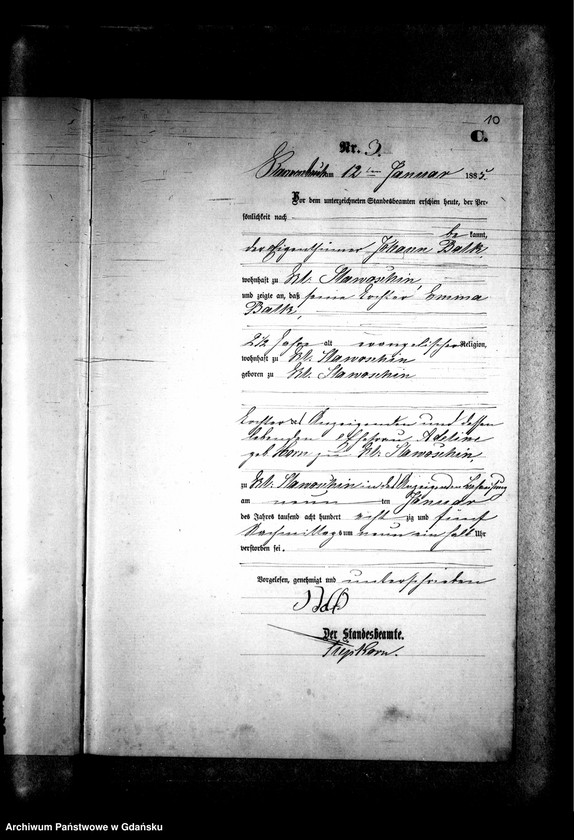 10
C.
Nr. 3.
am 12ten Januar 1885.
Vor dem unterzeichneten Standesbeamten erschien heute, der Per-
sönlichkeit nach
be kannt,
der Eigenthümer Johann Balk,
wohnhaft zu Kl. Stawoschin,
und zeigte an, daß seine Tochter Emma
Balk,
2½ Jahre alt evangelischer Religion,
wohnhaft zu Kl. Stawoschin
geboren zu Kl. Stawoschin
Tochter des Anzeigenden und dessen
lebenden Ehefrau Adeline
geb. Horn zu Kl. Stawoschin,
zu Kl. Stawoschin in des Anzeigenden Behausung
am neun ten Januar
des Jahres tausend acht hundert acht zig und fünf
Nachmittags um neun ein halb Uhr
verstorben sei.
Vorgelesen, genehmigt und unterschrieben
Der Standesbeamte.
Archiwum Państwowe w Gdańsku